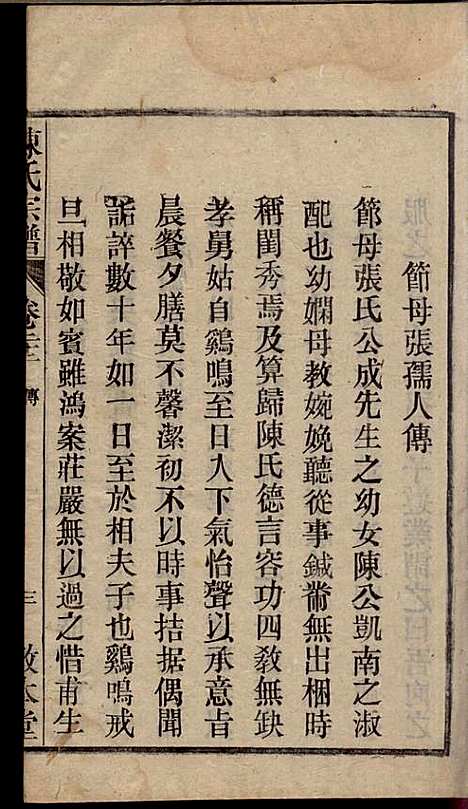 節母張孺人傳
節母張氏公成先生之幼女陳公凱南之淑
配也幼嫻母教婉娩聽從事鍼黹無出梱時
稱閨秀焉及笄歸陳氏德言容功四教無缺
孝舅姑自鷄鳴至日入下氣怡聲以承意旨
晨餐夕膳莫不馨潔初不以時事拮据偶聞
詬誶數十年如一日至於相夫子也鷄鳴戒
旦相敬如賓雖鴻案莊嚴無以過之惜甫生
陳氏宗譜
傳
三
敦本堂